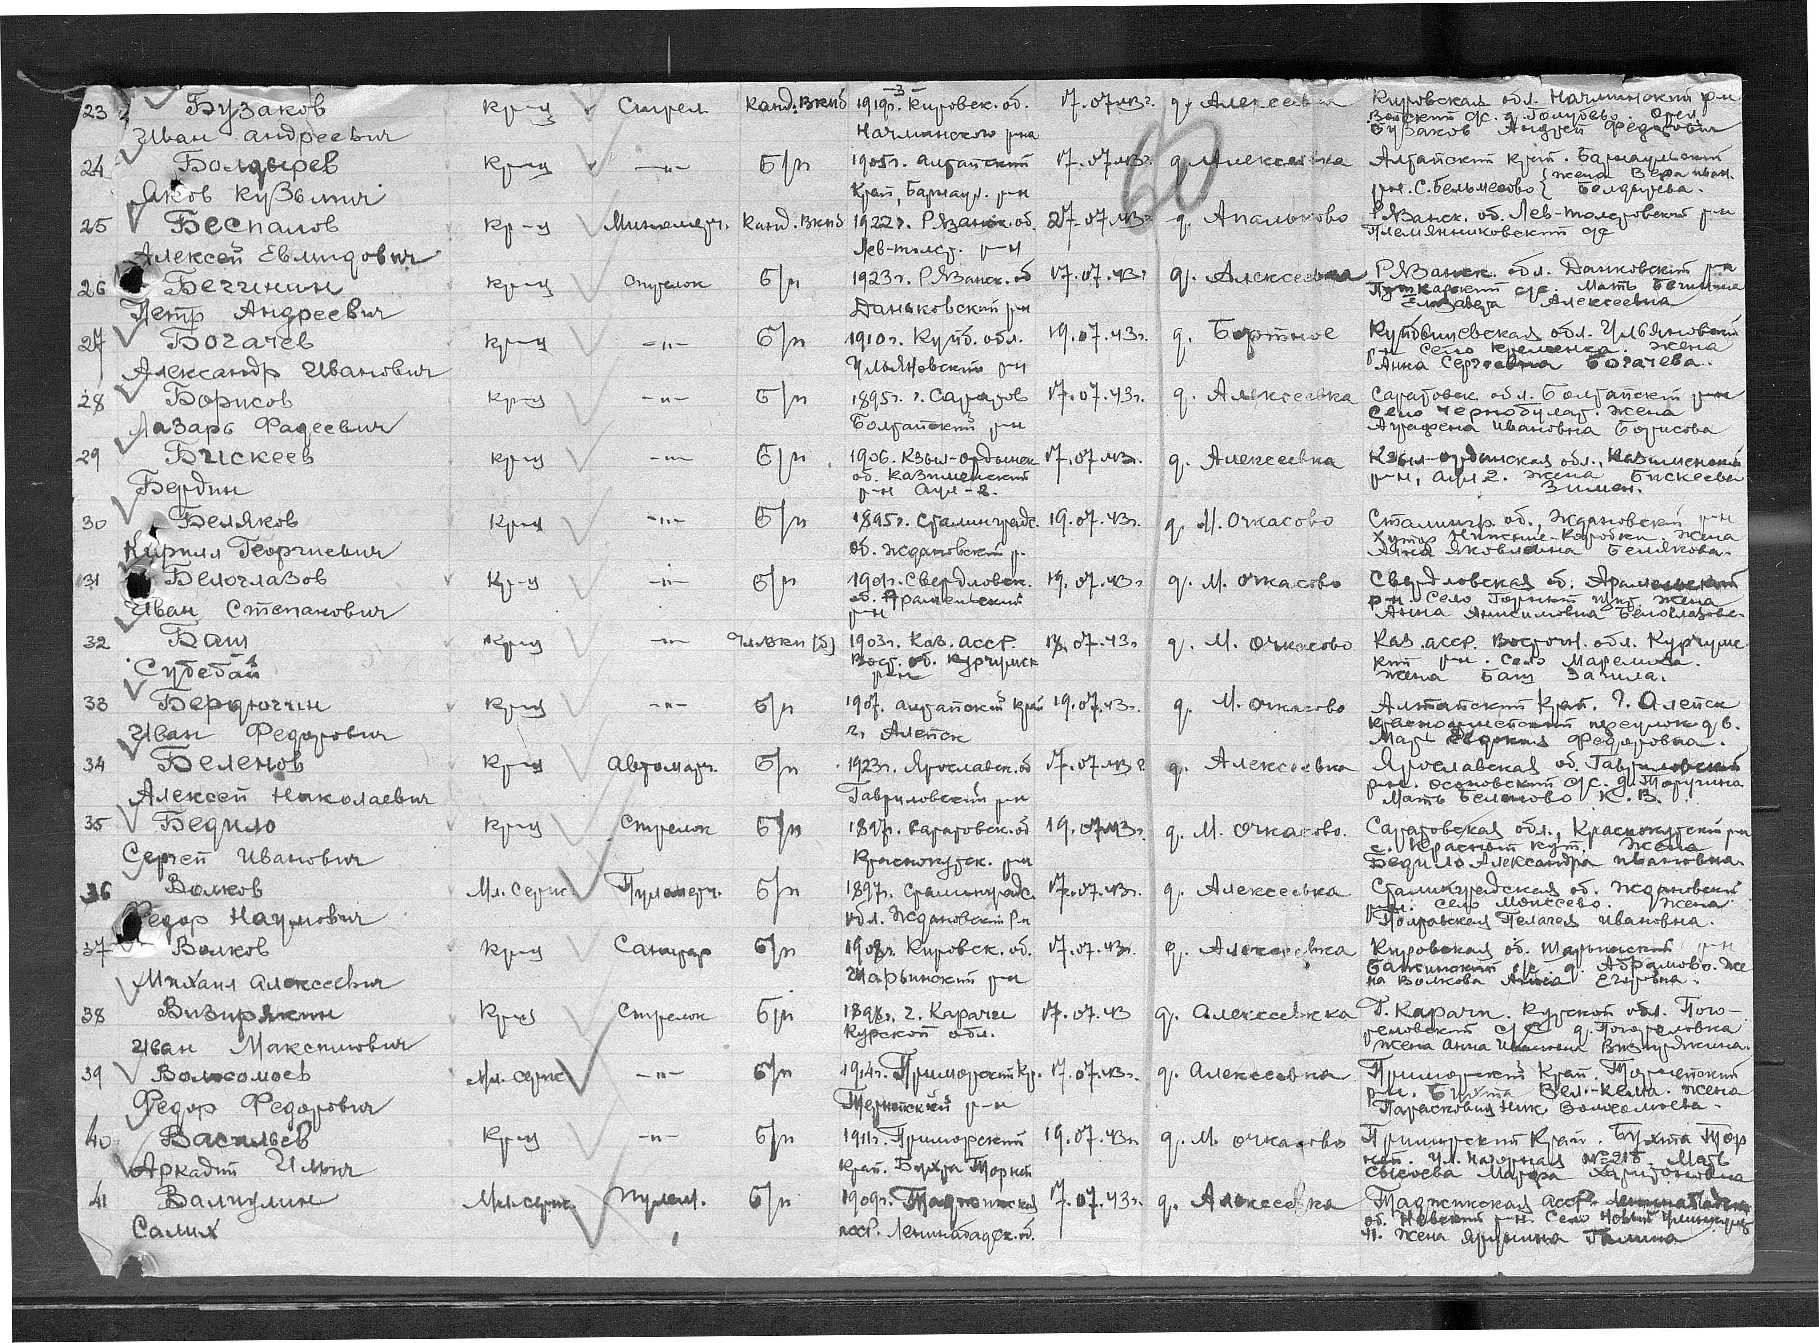 -3-
60
23 Бузаков кр-ц Стрел. Канд. ВКПб 1919г. Кировск. об. 17.07.43г. д. Алексеевка Кировская обл.
Иван Андреевич р-на д. Голубево. Отец
Бузаков Андрей Федосович
24 Болдырев кр-ц -"- б/п 1905г. Алтайский 17.07.43г. д. Алексеевка Алтайский край. Барнаульский
Яков Кузьмич край, Барнаул. р-н р-н. с. Бельмесово жена Вера Иван. Болдырева.
25 Беспалов кр-ц Минометч. Канд. ВКПб 1922г. Рязанск. об. 27.07.43г. д. Апальково Рязанск. об. Лев-толстовский р-н
Алексей Евлидович Лев-толст. р-н Племянниковский с/с
26 Бегинин кр-ц стрелок б/п 1923г. Рязанск. об 17.07.43г. д. Алексеевка Рязанск. обл. Данковский р-н
Петр Андреевич Даньковский р-н с/с. Мать Бегинина
Елизавета Алексеевна
27 Богачев кр-ц -"- б/п 1910г. Куйб. обл. 19.07.43г. д. Бортное Куйбышевская обл. Ульяновский
Александр Иванович Ульяновский р-н р-н село Кременка. Жена
Анна Сергеевна Богачева.
28 Борисов кр-ц -"- б/п 1895г. г. Саратов 17.07.43г. д. Алексеевка Саратовск. обл. Болтайский р-н
Лазарь Фадеевич Болтайский р-н село Чернобулат. Жена
Аграфена Ивановна Борисова
29 Бискеев кр-ц -"- б/п 1906. Кзыл-ордынск 17.07.43г. д. Алексеевка Кзыл-ординская обл.,
Бердин об. р-н Аул-2. р-н, аул 2. Жена Бискеева
Зимен.
30 Беляков кр-ц -"- б/п 1895г. Сталинград. 19.07.43г. д. М. Очкасово Сталингр. об., Ждановский р-н
Кирилл Георгиевич об. Ждановский р. Хутор Нижние-Коробки. Жена
Анна Яковлевна Белякова.
31 Белоглазов кр-ц -"- б/п 1901г. Свердловск. 19.07.43г д. М. Очкасово Свердловская об. Арамильский
Иван Степанович об. Арамильский р-н р-н. село Горный Щит. Жена
Анна Анисимовна Белоглазова.
32 Баш кр-ц -"- чл. ВКП(б) 1903г. Каз. АССР. 18.07.43г. д. М. Очкасово Каз. АССР. Восточн. обл. Курчумс-
Субебай Вост. об. Курчумск р-н кий р-н. село
Жена Баш Загила.
33 Бердюгин кр-ц -"- б/п 1907. Алтайский край 19.07.43г. д. М. Очкасово Алтайский край. г. Алейск
Иван Федорович г. Алейск переулок д 6.
Мать Федоровна.
34 Беленов кр-ц Автомат. б/п 1923г. Ярославск. об 17.07.43г д. Алексеевка Ярославская об. Гавриловский
Алексей Николаевич Гавриловский р-н р-н. Осоновский с/с.
Мать Беленово К. В.
35 Бедило кр-ц Стрелок б/п 1897г. Саратовск. об 19.07.43г. д. М. Очкасово. Саратовская обл., Краснокутский р-н
Сергей Иванович Краснокутск. р-н с. Красный Кут. Жена
Бедило Александра Ивановна.
36 Волков Мл. серж. Пулеметч. б/п 1897г. Сталинград. 17.07.43г. д. Алексеевка Сталинградская об. Ждановский
Федор Наумович обл. Ждановский р-н р-н. село Моисеево. Жена
Полтавская Пелагея Ивановна.
37 Волков кр-ц Санитар б/п 1908г. Кировск. об. 17.07.43г. д. Алексеевка Кировская об. Шарьинский р-н
Михаил Алексеевич Шарьинский р-н с/с д. Абрамово. Же
на Волкова Анна Егоровна.
38 Визирякин кр-ц Стрелок б/п 1898г. г. Карачи 17.07.43 д. Алексеевка Г. Карачи. Курской обл. Пого-
Иван Максимович Курской обл. реловский с/с д. Погореловка
Жена Анна Ивановна Визирякина.
39 Воложомоев Мл. серж -"- б/п 1914г. Приморский кр. 17.07.43г. д. Алексеевка Приморский край Тернейский
Федор Федорович Тернейский р-н р-н. Бухта Вел-Кема. Жена
Парасковия Ник.
40 Васильев кр-ц -"- б/п 1911г. Приморский 19.07.43г. д. М. Очкасово Приморский край. Бухта Тер
Аркадий Ильич край. Бухта Терней ней. Ул. Нагорная №218. Мать
Сысоева Марфа Харитоновна
41 Валиулин Мл. серж. Пулем. б/п 1909г. Таджикская 17.07.43г. д. Алексеевка Таджикская АССР. Ленинабадская
Салих АССР. Ленинабадск. об. об. Невский р-н. село Новый
Жена Галина